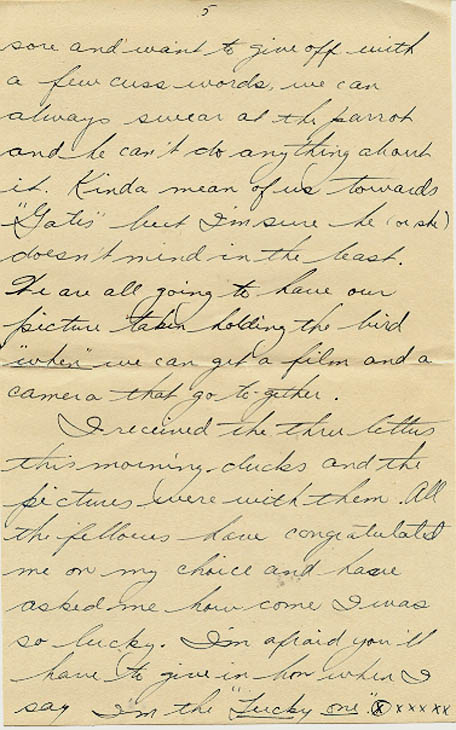 5
sore and want to give off with
a few cuss words, we can
always swear at the parrot
and he can't do anything about
it. Kinda mean of us towards
"Gates" but I'm sure he (or she)
doesn't mind in the least.
We are all going to have our
picture taken holding the bird
"when" we can get a film and a
camera that go to-gether.
I received the three letters
this morning - ducks and the
pictures were with them. All
the fellows have congratulated
me on my choice and have
asked me how come I was
so lucky. I'm afraid you'll
have to give in hon when I
say I'm the "Lucky one". X xxxxx